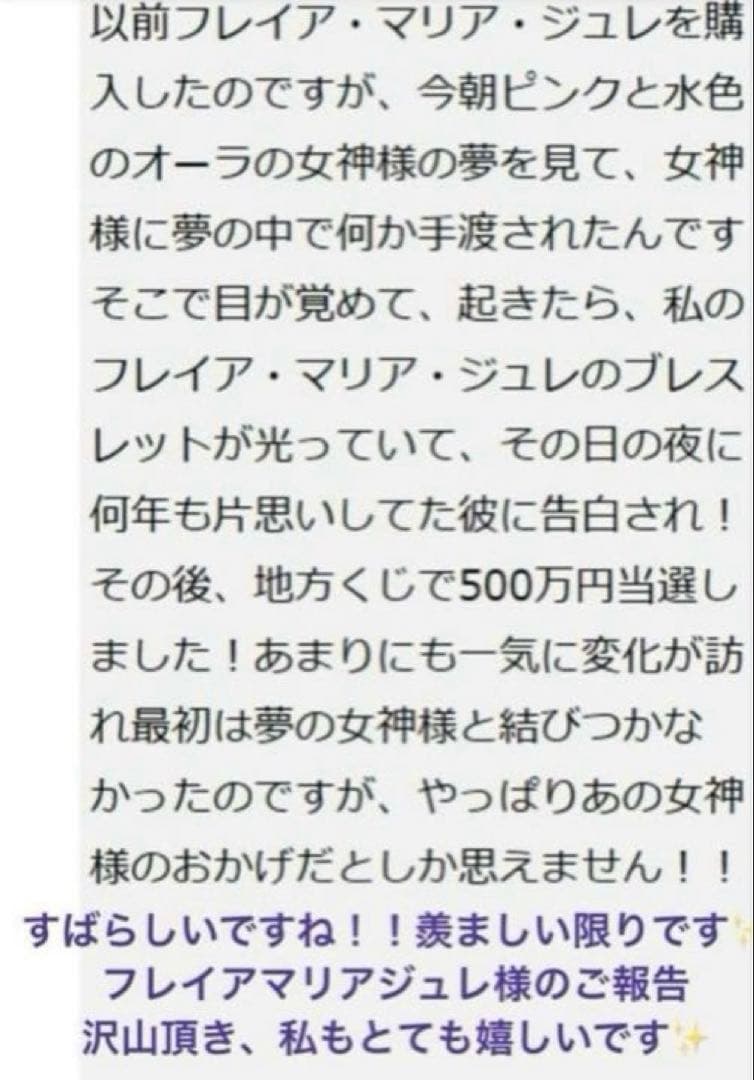 以前フレイア・マリア・ジュレを購
入したのですが、今朝ピンクと水色
のオーラの女神様の夢を見て、女神
様に夢の中で何か手渡されたんです
そこで目が覚めて、起きたら、私の
フレイア・マリア・ジュレのブレス
レットが光っていて、その日の夜に
何年も片思いしてた彼に告白され！
その後、地方くじで500万円当選し
ました！あまりにも一気に変化が訪
れ最初は夢の女神様と結びつかな
かったのですが、やっぱりあの女神
様のおかげだとしか思えません！！
すばらしいですね！！羨ましい限りです✨
フレイアマリアジュレ様のご報告
沢山頂き、私もとても嬉しいです✨